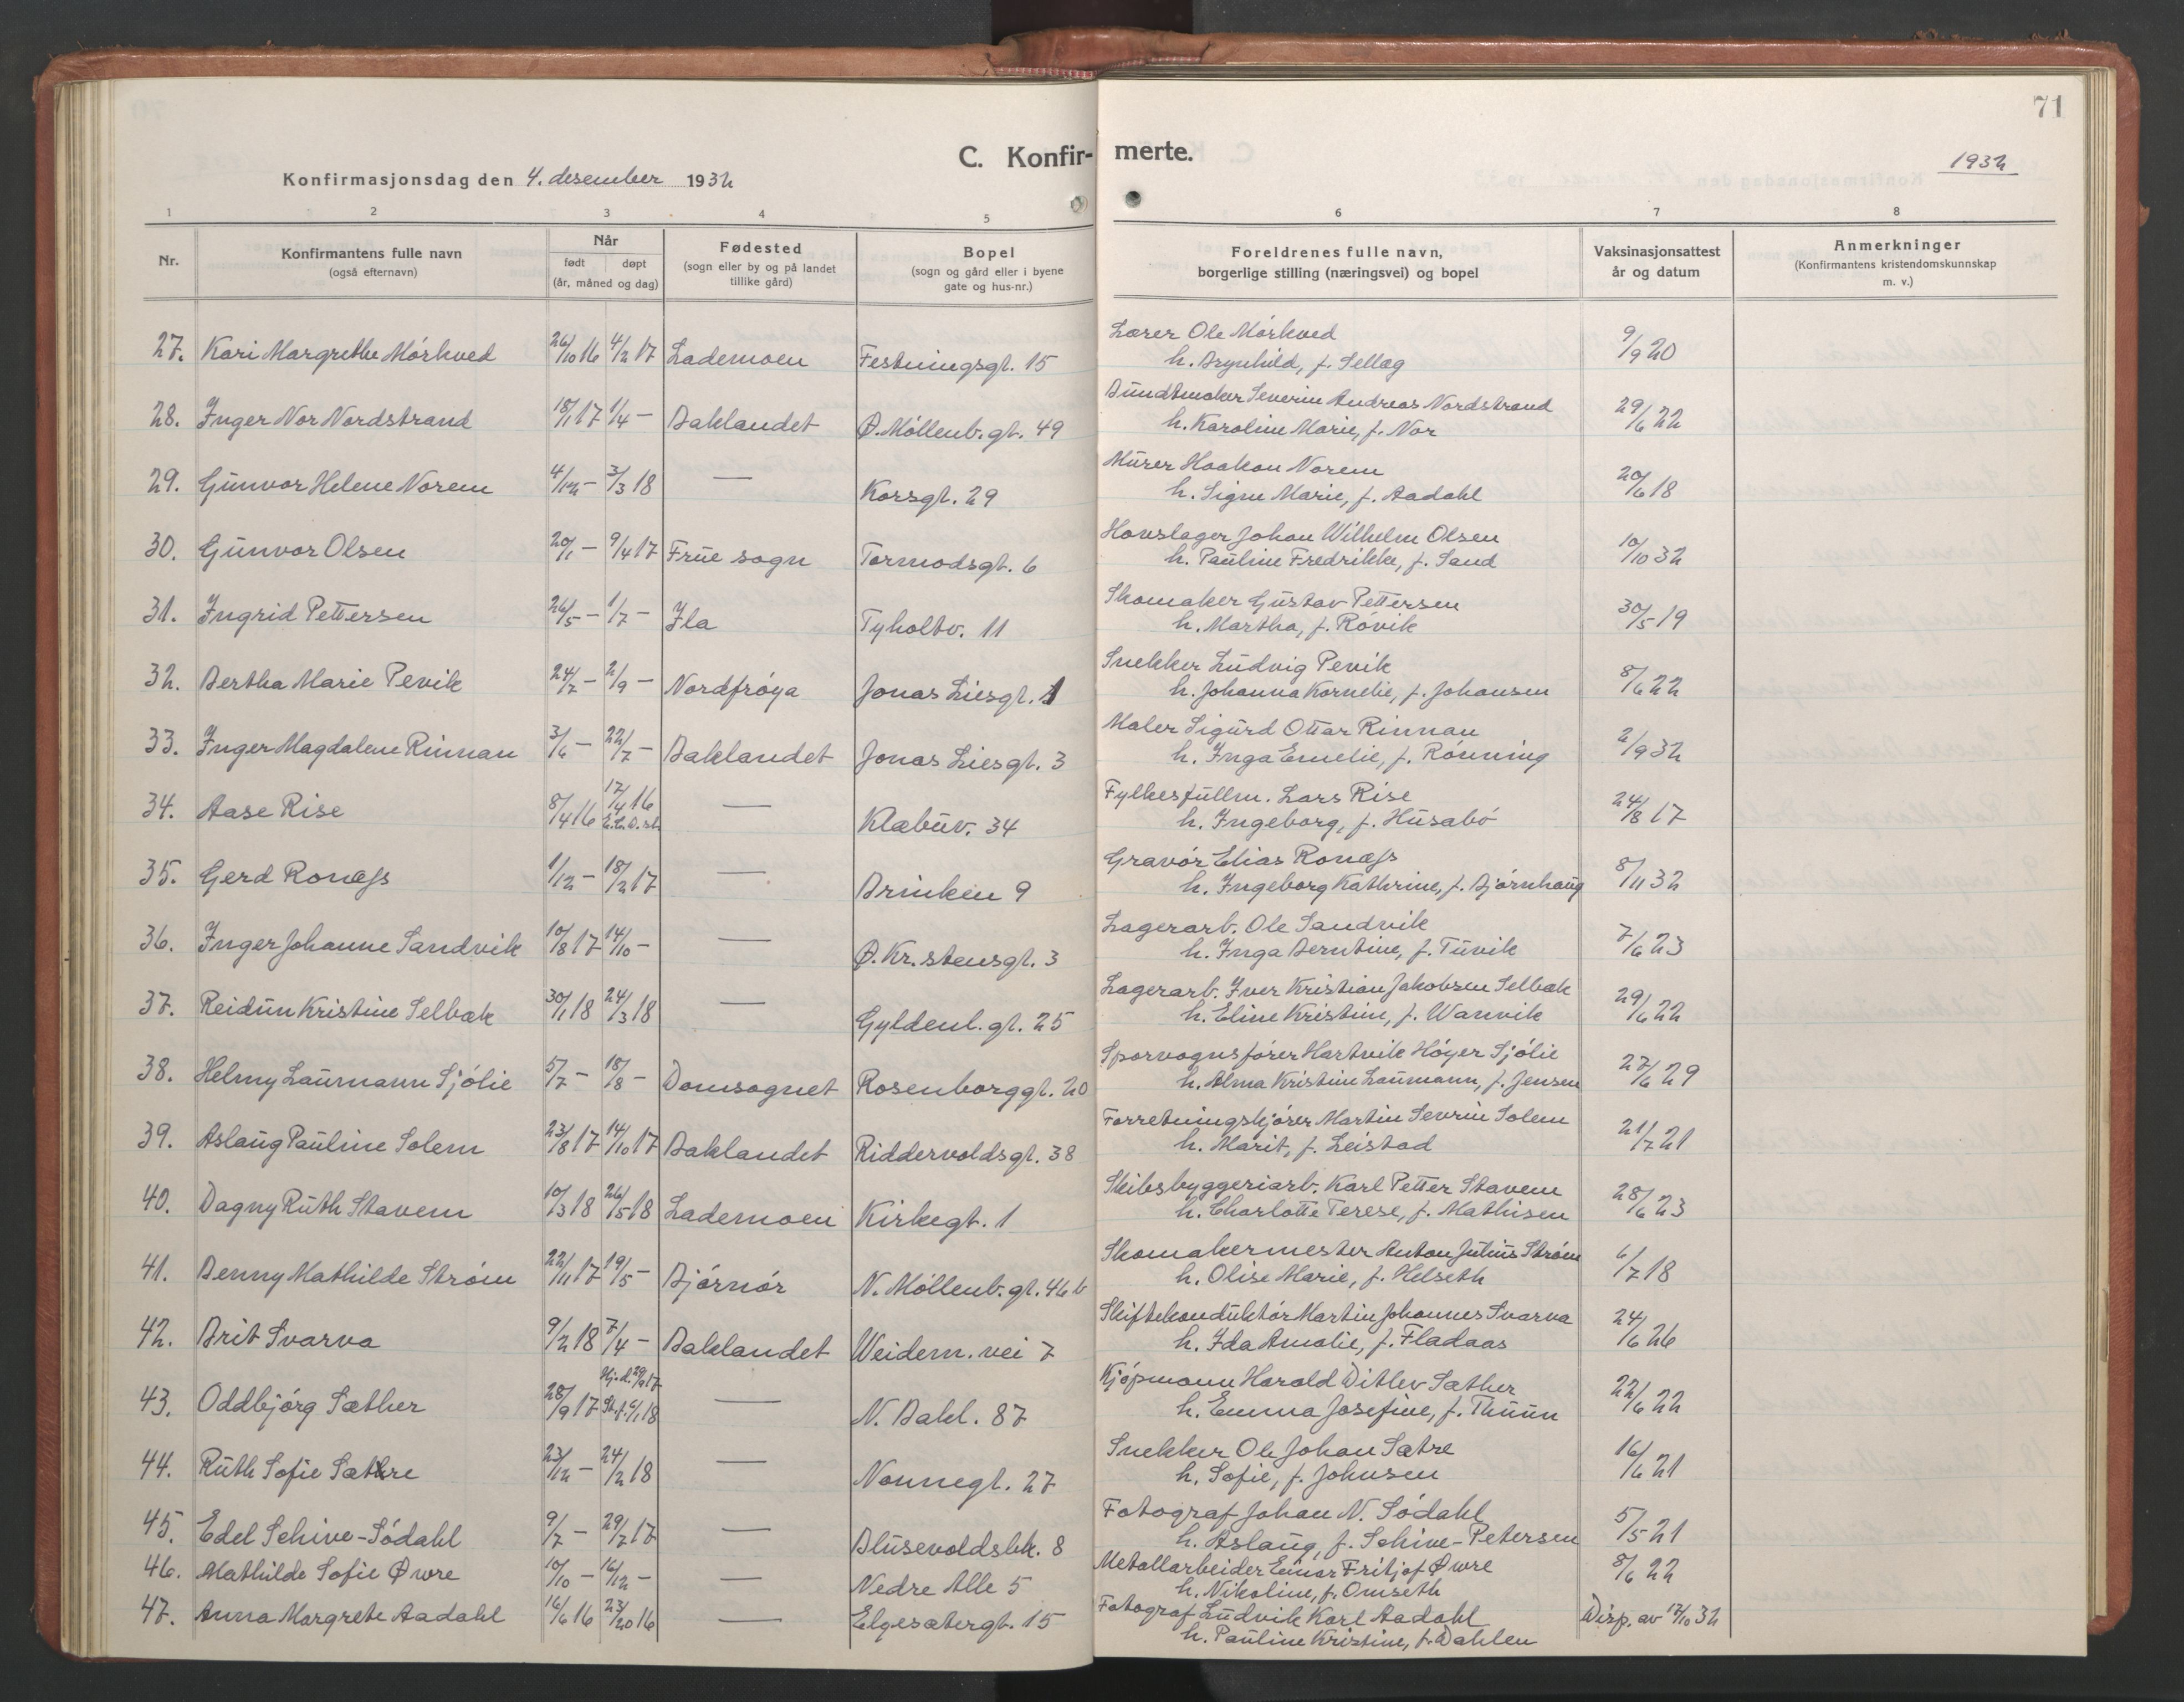 71
C. Konfirmerte.
Konfirmasjonsdag den 4. desember 1932
1932
1 2 3 4 5 6 7 8
Nr.
Konfirmantens fulle navn
(også efternavn)
Når
født døpt
(år, måned og dag)
Fødested
(sogn eller by og på landet
tillike gård)
Bopel
(sogn og gård eller i byene
gate og hus-nr.)
Foreldrenes fulle navn,
borgerlige stilling (næringsvei) og bopel
Vaksinasjonsattest
år og datum
Anmerkninger
(Konfirmantens kristendomskunnskap
m. v.)
Lærer Ole Mórkved
27. Kari Margrethe Mórkved 26/10 16 4/2 17 Lademoen Festningsgt. 15 h. Brynhild, f. Sellæg 9/9 20
Buntmaker Severin Andreas Nordstrand
28. Inger Nor Nordstrand 18/1 17 1/4 - Baklandet Ø. Móllenb. gt. 49 h. Karoline Marie, f. Nor 29/6 22
Murer Haakon Norem
29. Gunvor Helene Norem 4/12 - 3/3 18 — Korsgt. 29 h. Signe Marie, f. Aadahl 20/6 18
Hovslager Johan Wilhelm Olsen
30. Gunvor Olsen 20/1 - 9/4 17 Frue sogn Tormodsgt. 6 h. Pauline Fredrikke, f. Sand 10/10 32
Skomaker Gustav Pettersen
31. Ingrid Pettersen 26/5 - 1/7 - Ila Tyholtv. 11 h. Martha, f. Róvik 30/5 19
Snekker Ludvig Pevik
32. Bertha Marie Pevik 24/7 - 2/9 - Nordfróya Jonas Liesgt. 1 h. Johanna Kornelie, f. Johansen 8/6 22
Maler Sigurd Ottar Rinnan
33. Inger Magdalene Rinnan 3/6 - 22/7 - Baklandet Jonas Liesgt. 3 h. Inga Emelie, f. Rónning 2/9 32
Fylkesfullm. Lars Rise
34. Aase Rise 8/4 16 17/4 16 — Klæbuv. 34 h. Ingeborg, f. Húsabó 24/8 17
Gravór Elias Ronæss
35. Gerd Ronæss 1/12 - 18/2 17 — Brinken 9 h. Ingeborg Kathrine, f. Bjórnhaug 8/11 32
Lagerarb. Ole Sandvik
36. Inger Johanne Sandvik 10/8 17 14/10 - — Ø. Kr.stensgt. 3 h. Inga Berntine, f. Tuvik 7/6 23
Lagerarb. Iver Kristian Jakobsen Selbæk
37. Reidun Kristine Selbæk 30/1 18 24/3 18 — Gyldenl. gt. 25 h. Eline Kristine, f. Wanvik 29/6 22
Sporvognsfører Hartvik Hóyer Sjólie
38. Helmy Laumann Sjólie 5/7 - 18/8 - Domsognet Rosenborggt. 20 h. Alma Kristine Laumann, f. Jensen 27/6 29
Forretningskjórer Martin Sevrin Solem
39. Aslaug Pauline Solem 23/8 17 14/10 17 Baklandet Riddervoldsgt. 38 h. Marit, f. Leistad 21/7 21
Skibsbyggeriarb. Karl Petter Stavem
40. Dagny Ruth Stavem 10/3 18 26/5 18 Lademoen Kirkegt. 1 h. Charlotte Terese, f. Mathisen 28/6 23
Skomakermester Anton Julius Stróm
41. Benny Mathilde Stróm 22/11 17 19/5 - Bjórnór N. Móllenb. gt. 46 b h. Olise Marie, f. Helseth 6/7 18
Skiftekonduktór Martin Johannes Svarva
42. Brit Svarva 9/2 18 7/4 - Baklandet Weiderm. vei 7 h. Ida Amalie, f. Fladaas 24/6 26
Kjópmann Harald Ditlev Sæther
43. Oddbjórg Sæther 28/9 17 Hj.d. 29/9 17 St. f. 6/1 18 — N. Bakl. 87 h. Emma Josefine, f. Thuun 22/6 22
Snekker Ole Johan Sætre
44. Ruth Sofie Sætre 23/12 - 24/2 18 — Nonnegt. 27 h. Sofie, f. Johnsen 16/6 21
Fotograf Johan N. Sódahl
45. Edel Schive-Sódahl 9/7 - 29/7 17 — Blusevoldsbk. 8 h. Aslaug, f. Schive-Petersen 5/5 21
Metallarbeider Einar Fritjof Øwre
46. Mathilde Sofie Øwre 10/10 - 16/12 - — Nedre Alle 5 h. Nikoline, f. Omseth 8/6 22
Fotograf Ludvik Karl Aadahl
47. Anna Margrete Aadahl 16/6 16 23/20 16 — Elgesætergt. 15 h. Pauline Kristine, f. Dahlen Disp. av 17/10 32